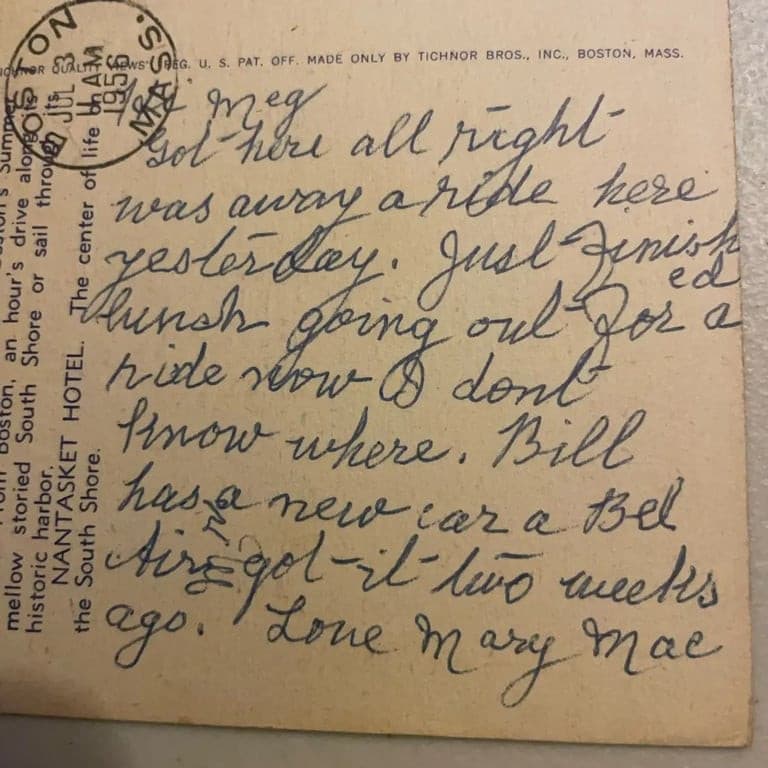 BOSTON MASS.
JUL 3
11 AM
1956
TICHNOR QUALITY VIEWS" REG. U. S. PAT. OFF. MADE ONLY BY TICHNOR BROS., INC., BOSTON, MASS.
Meg
Got here all right
was away a ride here
yesterday. Just Finish
ed
lunsh going out For a
ride now I dont
know where. Bill
has a new car a Bel
Air got it two weeks
ago. Love Mary Mac
From Boston, an hour's drive along its
mellow storied South Shore or sail through its
historic harbor.
NANTASKET HOTEL. The center of life on
the South Shore.